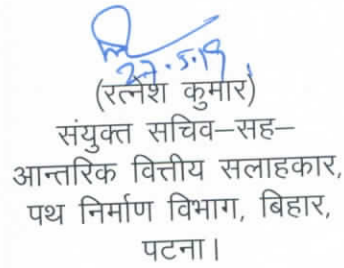 27.5.19
(रत्नेश कुमार)
संयुक्त सचिव–सह–
आन्तरिक वित्तीय सलाहकार,
पथ निर्माण विभाग, बिहार,
पटना।